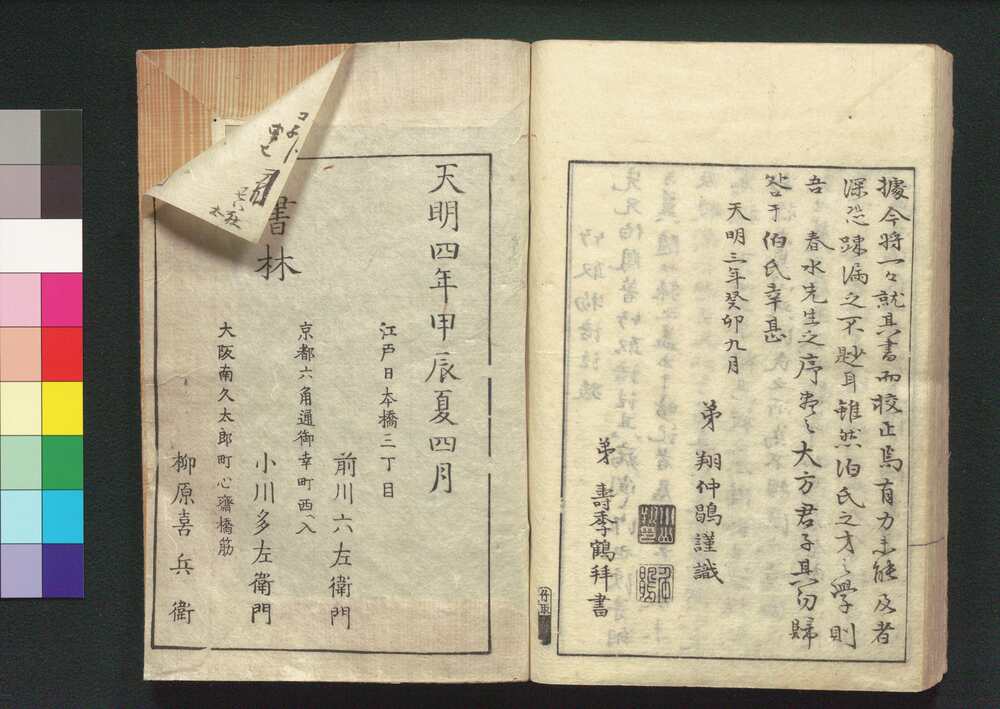 據今将一々就其書而挍正焉有力未能及者
深恐踈漏之不尠耳雖然伯氏之才之學則
吾　春水先生之序盡之大方君子其勿歸
咎于伯氏幸甚
天明三年癸卯九月
弟　翔仲鶤謹識
弟　壽季鶴拜書
竹取
天明四年甲辰夏四月
江戸日本橋三丁目
前川六左衛門
京都六角通御幸町西へ入
小川多左衛門
大阪南久太郎町心齋橋筋
柳原喜兵衛
書林